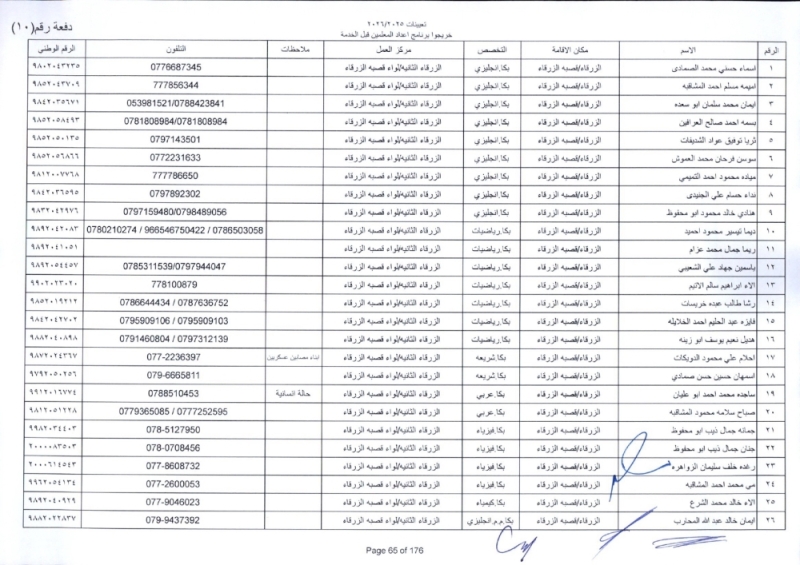 تعيينات ٢٠٢٦/٢٠٢٥
خريجوا برنامج اعداد المعلمين قبل الخدمة
دفعة رقم(١٠)
الرقم الاسم مكان الاقامة التخصص مركز العمل ملاحظات التلفون الرقم الوطني
١ اسماء حسني محمد الصمادي الزرقاء/قصبه الزرقاء بكا.انجليزي الزرقاء الثانيه/لواء قصبه الزرقاء 0776687345 ٩٨٠٢٠٤٣٢٣٥
٢ اميمه مسلم احمد المشاقبه الزرقاء/قصبه الزرقاء بكا.انجليزي الزرقاء الثانيه/لواء قصبه الزرقاء 777856344 ٩٨٥٢٠٤٣٧٠٩
٣ ايمان محمد سلمان ابو سعده الزرقاء/قصبه الزرقاء بكا.انجليزي الزرقاء الثانيه/لواء قصبه الزرقاء 053981521/0788423841 ٩٨٤٢٠٣٥٦٧١
٤ بسمه احمد صالح العرافين الزرقاء/قصبه الزرقاء بكا.انجليزي الزرقاء الثانيه/لواء قصبه الزرقاء 0781808984/0781808984 ٩٨٥٢٠٥٨٤٩٣
٥ ثريا توفيق عواد الشديفات الزرقاء/قصبه الزرقاء بكا.انجليزي الزرقاء الثانيه/لواء قصبه الزرقاء 0797143501 ٩٨٥٢٠٥٠١٣٥
٦ سوسن فرحان محمد العموش الزرقاء/قصبه الزرقاء بكا.انجليزي الزرقاء الثانيه/لواء قصبه الزرقاء 0772231633 ٩٨٥٢٠٥٦٨٦٦
٧ مياده محمود احمد التميمي الزرقاء/قصبه الزرقاء بكا.انجليزي الزرقاء الثانيه/لواء قصبه الزرقاء 777786650 ٩٨١٢٠٠٧٧٦٨
٨ نداء حسام علي الجنيدى الزرقاء/قصبه الزرقاء بكا.انجليزي الزرقاء الثانيه/لواء قصبه الزرقاء 0797892302 ٩٨٤٢٠٣٦٥٩٥
٩ هنادي خالد محمود ابو محفوظ الزرقاء/قصبه الزرقاء بكا.انجليزي الزرقاء الثانيه/لواء قصبه الزرقاء 0797159480/0798489056 ٩٨٣٢٠٤٢٩٧٦
١٠ ديما تيسير محمود احميد الزرقاء/قصبه الزرقاء بكا.رياضيات الزرقاء الثانيه/لواء قصبه الزرقاء 0780210274 / 966546750422 / 0786503058 ٩٨٩٢٠٤٢٠٨٣
١١ ريما جمال محمد عزام الزرقاء/قصبه الزرقاء بكا.رياضيات الزرقاء الثانيه/لواء قصبه الزرقاء ٩٨٩٢٠٤١٠٥١
١٢ ياسمين جهاد علي الشعيبي الزرقاء/قصبه الزرقاء بكا.رياضيات الزرقاء الثانيه/لواء قصبه الزرقاء 0785311539/0797944047 ٩٨٩٢٠٥٤٤٥٧
١٣ الاء ابراهيم سالم الزرقاء/قصبه الزرقاء بكا.رياضيات الزرقاء الثانيه/لواء قصبه الزرقاء 778100879 ٩٩٠٢٠٢٣٠٢٠
١٤ رشا طالب عبده خريسات الزرقاء/قصبه الزرقاء بكا.رياضيات الزرقاء الثانيه/لواء قصبه الزرقاء 0786644434 / 0787636752 ٩٨٥٢٠١٩٢١٢
١٥ فايزه عبد الحليم احمد الخلايله الزرقاء/قصبه الزرقاء بكا.رياضيات الزرقاء الثانيه/لواء قصبه الزرقاء 0795909106 / 0795909103 ٩٨٤٢٠٤٢٧٠٢
١٦ هديل نعيم يوسف ابو زينه الزرقاء/قصبه الزرقاء بكا.رياضيات الزرقاء الثانيه/لواء قصبه الزرقاء 0791460804 / 0797312139 ٩٨٨٢٠٤٠٨٩٨
١٧ احلام علي محمود الدويكات الزرقاء/قصبه الزرقاء بكا.شريعه الزرقاء الثانيه/لواء قصبه الزرقاء ابناء مصابين عسكريين 077-2236397 ٩٨٧٢٠٢٤٣٦٧
١٨ اسمهان حسين حسن صمادي الزرقاء/قصبه الزرقاء بكا.شريعه الزرقاء الثانيه/لواء قصبه الزرقاء 079-6665811 ٩٧٩٢٠٥٠٢٥٦
١٩ ساجده محمد احمد ابو عليان الزرقاء/قصبه الزرقاء بكا.عربي الزرقاء الثانيه/لواء قصبه الزرقاء حالة انسانية 0788510453 ٩٩١٢٠١٦٧٧٤
٢٠ صباح سلامه محمود المشاقبه الزرقاء/قصبه الزرقاء بكا.عربي الزرقاء الثانيه/لواء قصبه الزرقاء 0779365085 / 0777252595 ٩٨١٢٠٥١٢٢٨
٢١ جمانه جمال ذيب ابو محفوظ الزرقاء/قصبه الزرقاء بكا.فيزياء الزرقاء الثانيه/لواء قصبه الزرقاء 078-5127950 ٩٩٨٢٠٣٤٤٠٣
٢٢ جنان جمال ذيب ابو محفوظ الزرقاء/قصبه الزرقاء بكا.فيزياء الزرقاء الثانيه/لواء قصبه الزرقاء 078-0708456 ٢٠٠٠٠٨٣٥٠٣
٢٣ رغده خلف سليمان الزواهره الزرقاء/قصبه الزرقاء بكا.فيزياء الزرقاء الثانيه/لواء قصبه الزرقاء 077-8608732 ٢٠٠٠٦١٤٥٤٣
٢٤ مي محمد احمد المشاقبه الزرقاء/قصبه الزرقاء بكا.فيزياء الزرقاء الثانيه/لواء قصبه الزرقاء 077-2600053 ٩٩٦٢٠٥٤١٣٤
٢٥ الاء خالد محمد الشرع الزرقاء/قصبه الزرقاء بكا.كيمياء الزرقاء الثانيه/لواء قصبه الزرقاء 077-9046023 ٩٨٩٢٠٤٠٩٢٩
٢٦ ايمان خالد عبد الله المحارب الزرقاء/قصبه الزرقاء بكا.م.م.انجليزي الزرقاء الثانيه/لواء قصبه الزرقاء 079-9437392 ٩٨٨٢٠٢٢٨٣٧
Page 65 of 176